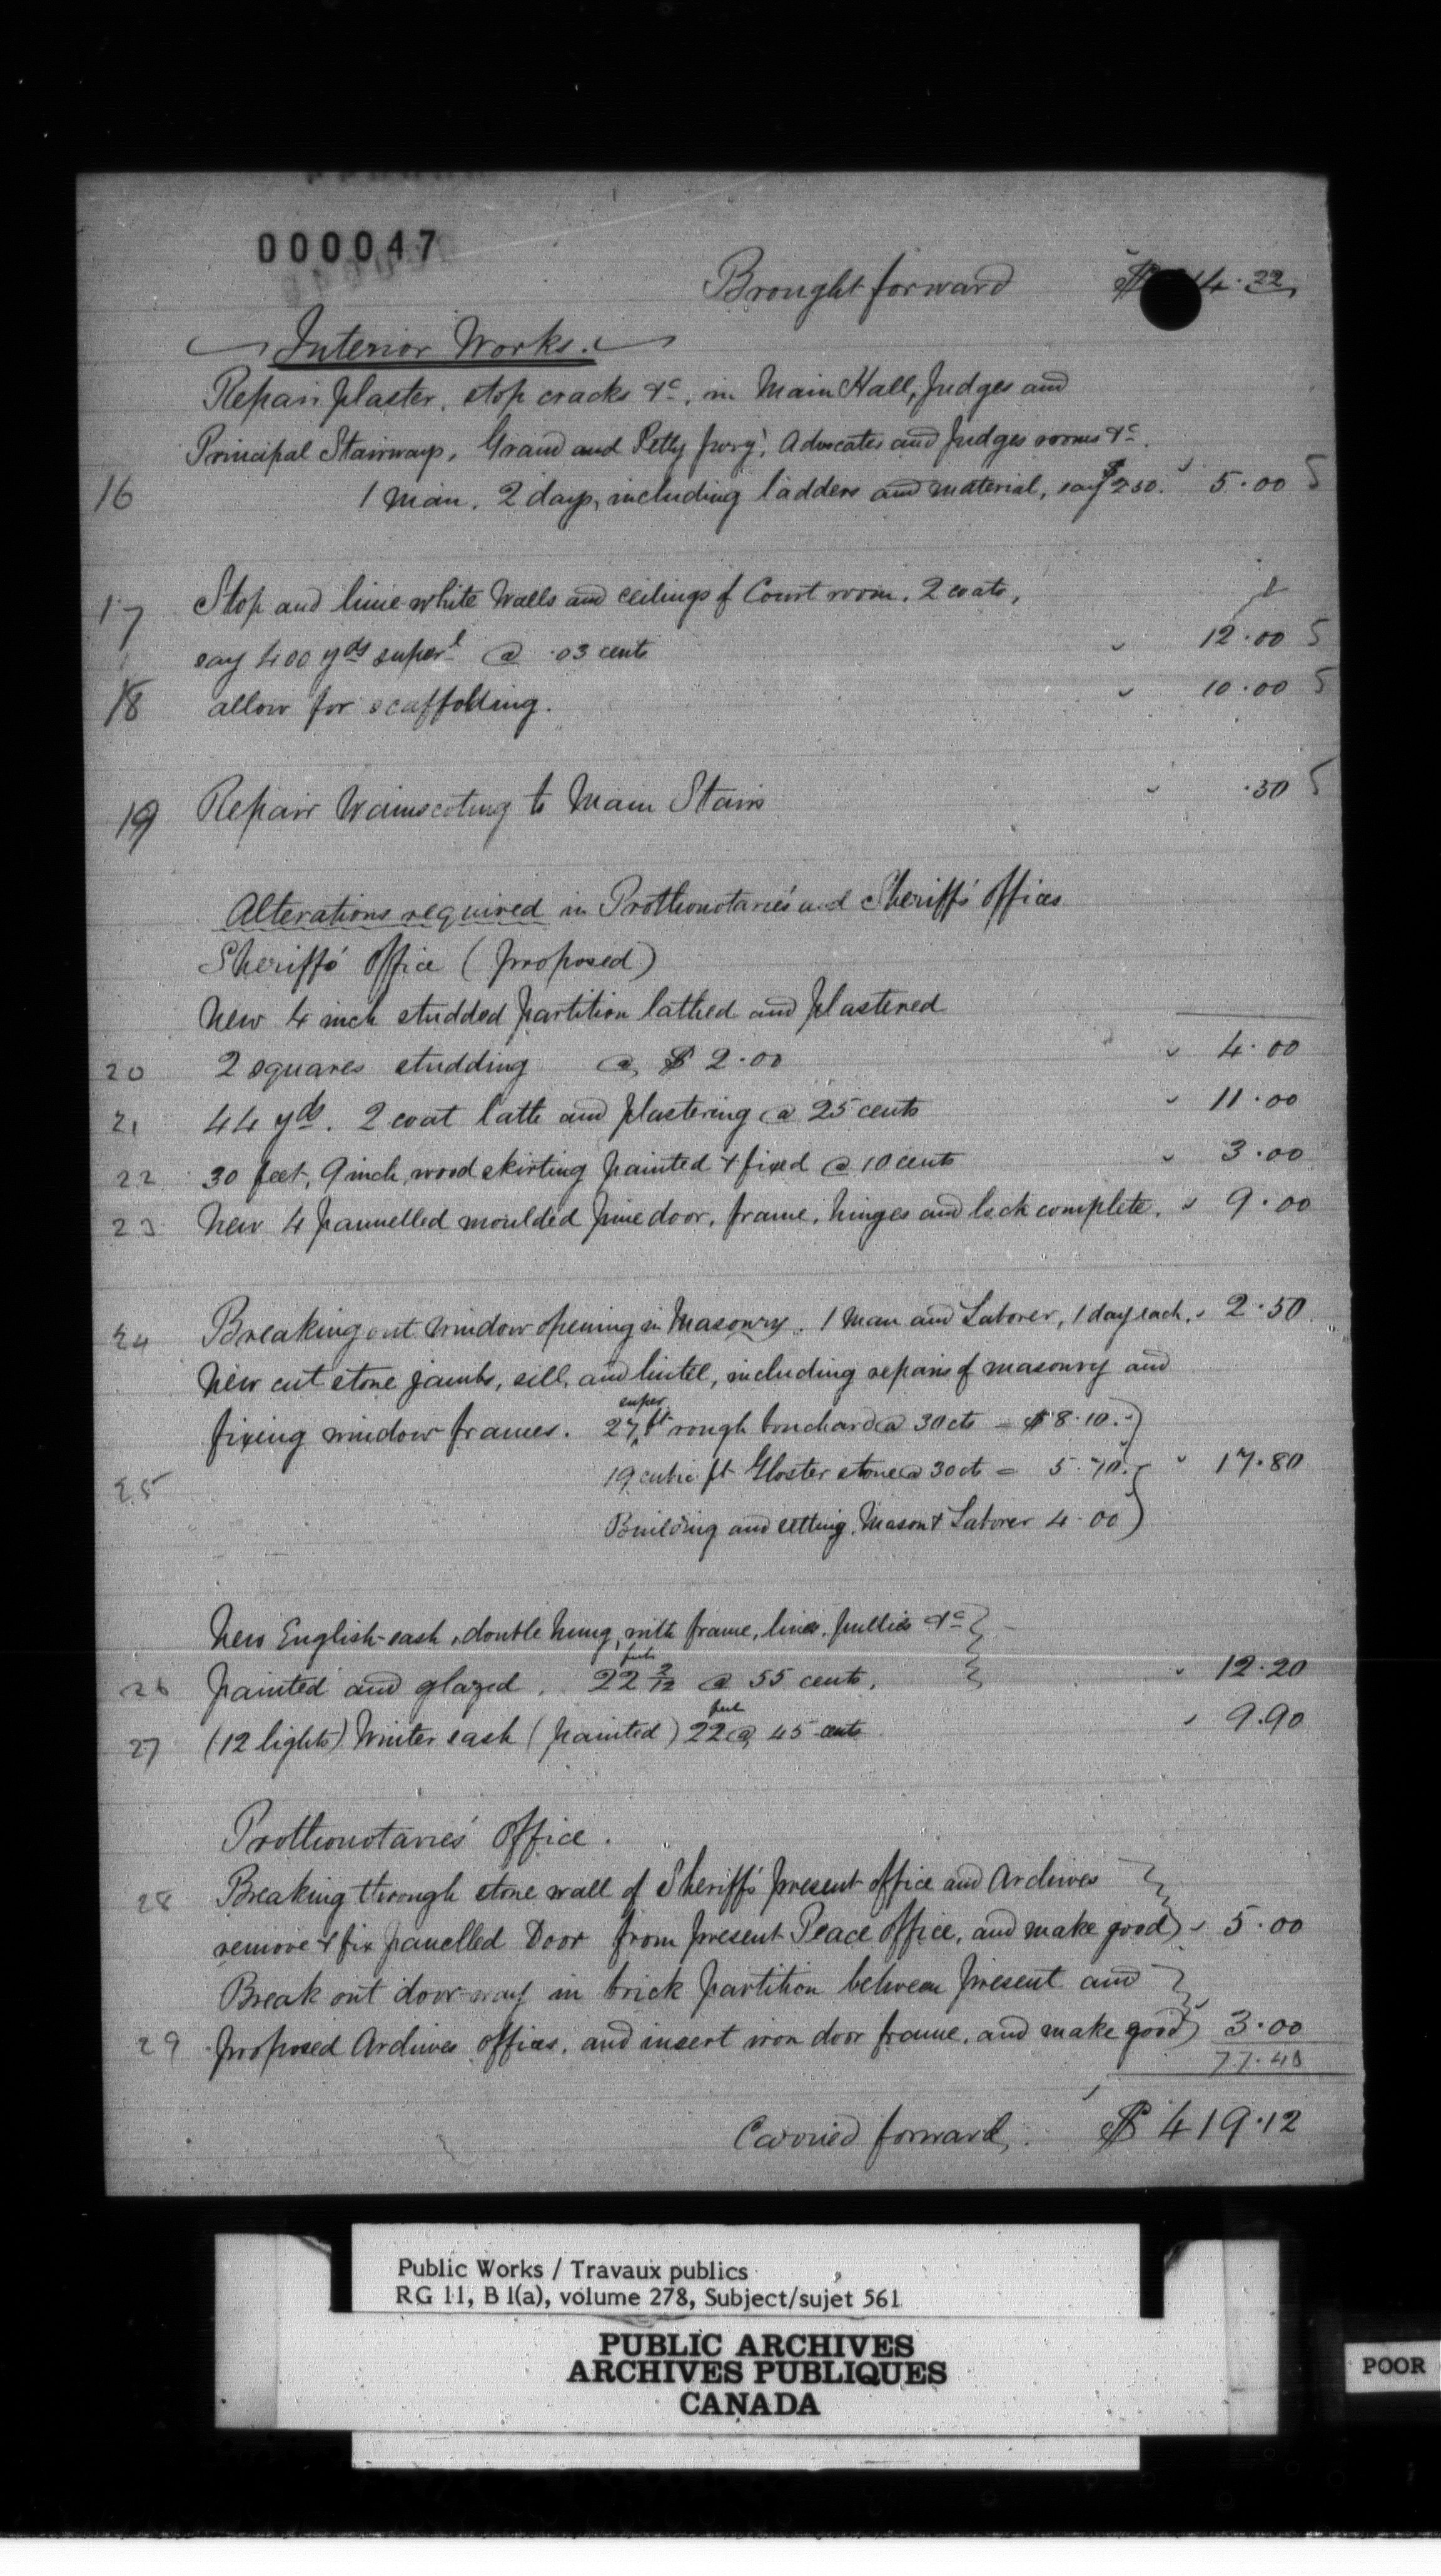 000047
Brought forward $ 14.22
Interior Works.
Repair plaster, stop cracks &c, in Main Hall, Judges and
Principal Stairways, Grand and Petty Jury, Advocates and Judges rooms &c.
16 1 Man, 2 days, including ladders and material, say $2.50. " 5.00 5
17 Stop and lime-white Walls and Ceilings of Court room, 2 coats,
say 400 yds superl @ .03 cents " 12.00 5
18 allow for scaffolding. " 10.00 5
19 Repair Wainscoting to Main Stairs " .50 5
Alterations required in Prothonotaries' and Sheriffs' Offices
Sheriffs' Office (proposed)
New 4 inch studded partition lathed and plastered
20 2 squares studding @ $2.00 " 4.00
21 44 yds. 2 coat lath and plastering @ 25 cents " 11.00
22 30 feet, 9 inch, wood skirting painted & fixed @ 10 cents " 3.00
23 New 4 pannelled moulded pine door, frame, hinges and lock complete, " 9.00
24 Breaking out window opening in Masonry. 1 Man and Laborer, 1 day each. " 2.50
New cut stone jambs, sill, and lintel, including repairs of masonry and
fixing window frames. 27 super ft rough bouchard @ 30 cts = $8.10.
25 19 cubic ft Gloster stone @ 30 ct = 5.70. " 17.80
Building and setting, Mason & Laborer 4.00
New English sash, double hung, with frame, lines, pullies &c
26 painted and glazed. 22 2/12 feet @ 55 cents. " 12.20
27 (12 lights) Winter sash (painted) 22 feet @ 45 cents " 9.90
Prothonotaries' Office.
28 Breaking through stone wall of Sheriffs' present office and Archives
remove & fix panelled Door from present Peace Office, and make good " 5.00
Break out door-way in brick partition between present and
29 proposed Archives offices, and insert iron door frame, and make good " 3.00
77.40
Carried forward, $ 419.12
Public Works / Travaux publics
RG 11, B 1(a), volume 278, Subject/sujet 561
PUBLIC ARCHIVES
ARCHIVES PUBLIQUES
CANADA
POOR